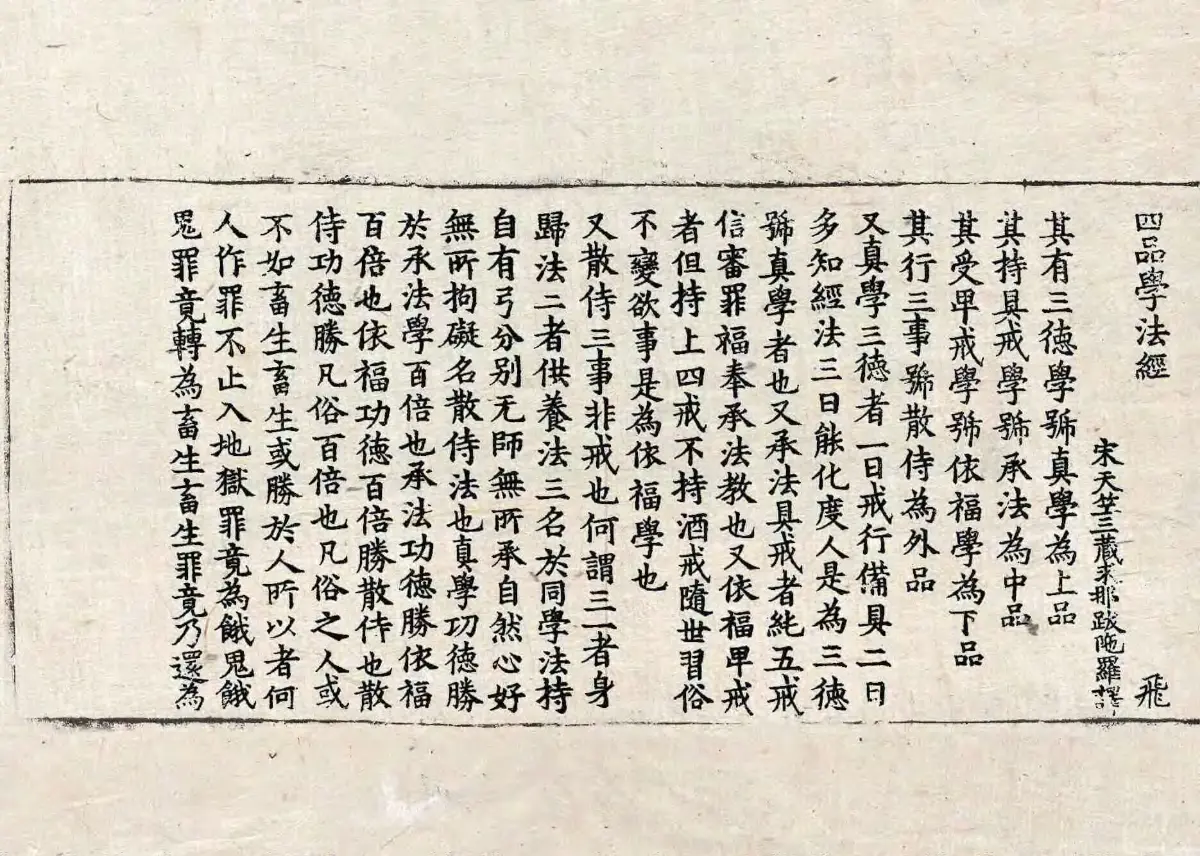 四品學法經 飛
宋天竺三藏求那跋陁羅譯
其有三德學號真學為上品
其持具戒學號承法為中品
其受畢戒學號依福學為下品
其行三事號散侍為外品
又真學三德者一曰戒行備具二曰
多知經法三曰能化度人是為三德
號真學者也又承法具戒者純五戒
信審罪福奉承法教也又依福畢戒
者但持上四戒不持酒戒隨世習俗
不變欲事是為依福學也
又散侍三事非戒也何謂三一者身
歸法二者供養法三名於同學法持
自有弓分别无師無所承自然心好
無所拘礙名散侍法也真學功德勝
於承法學百倍也承法功德勝依福
百倍也依福功德百倍勝散侍也散
侍功德勝凡俗百倍也凡俗之人或
不如畜生畜生或勝於人所以者何
人作罪不止入地獄罪竟為餓鬼餓
鬼罪竟轉為畜生畜生罪竟乃還為